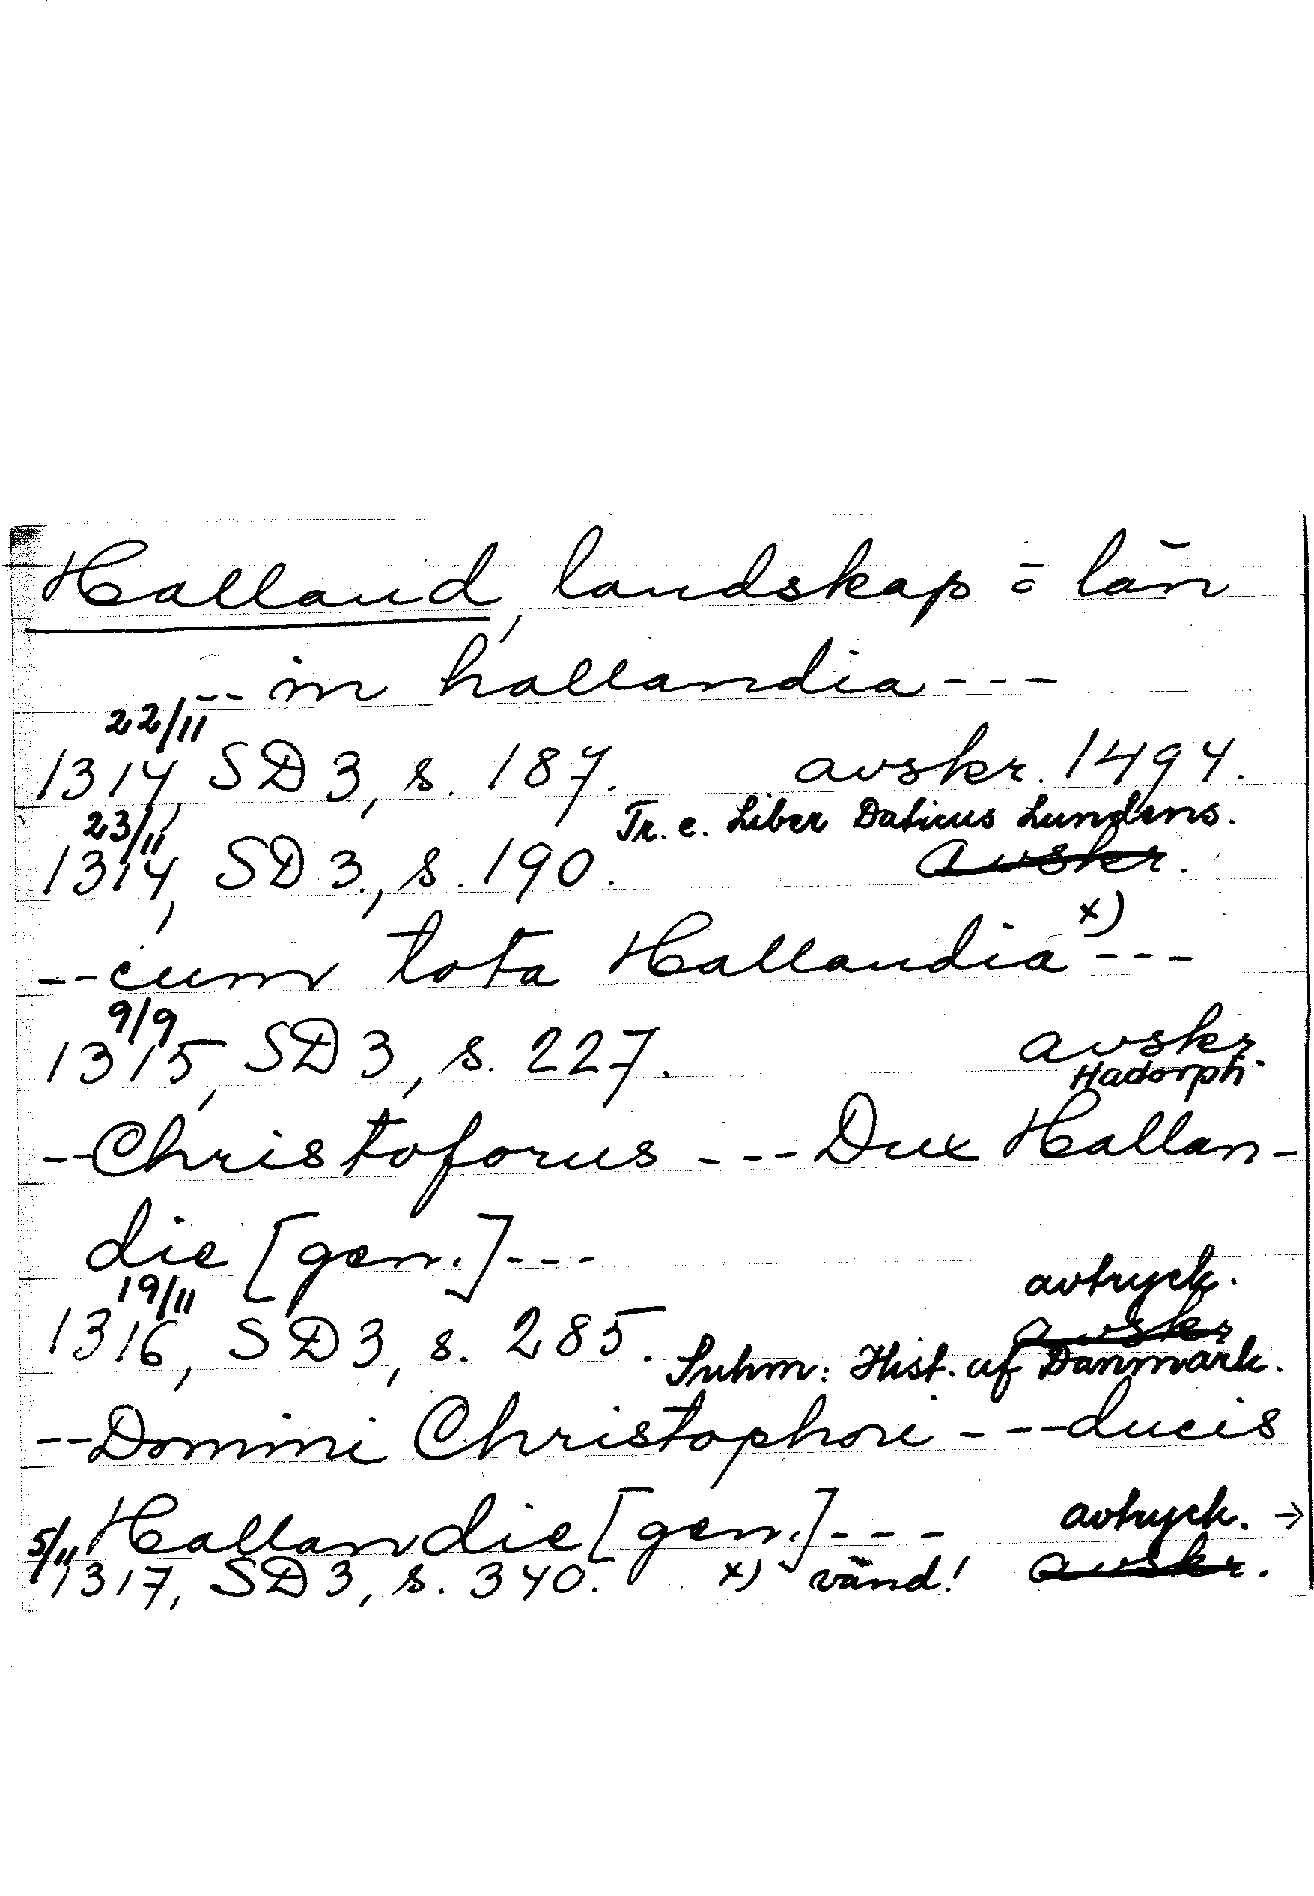 Halland, landskap = län
-- in hallandia ---
22/11
1314, SD 3, s. 187. avskr. 1494.
23/11 Tr. e. Liber Daticus Lundens.
1314, SD 3, s. 190. avskr.
-- cum tota Hallandia x) ---
9/9
1315, SD 3, s. 227. avskr.
Hadorph
-- Christoforus --- Dux Hallan-
die [gen.] ---
19/11 avtryck.
1316, SD 3, s. 285. avskr
Suhm: Hist. af Danmark.
-- Domini Christophori --- ducis
Hallandie [gen.] --- avtryck. →
5/11 1317, SD 3, s. 340. x) vänd! avskr.